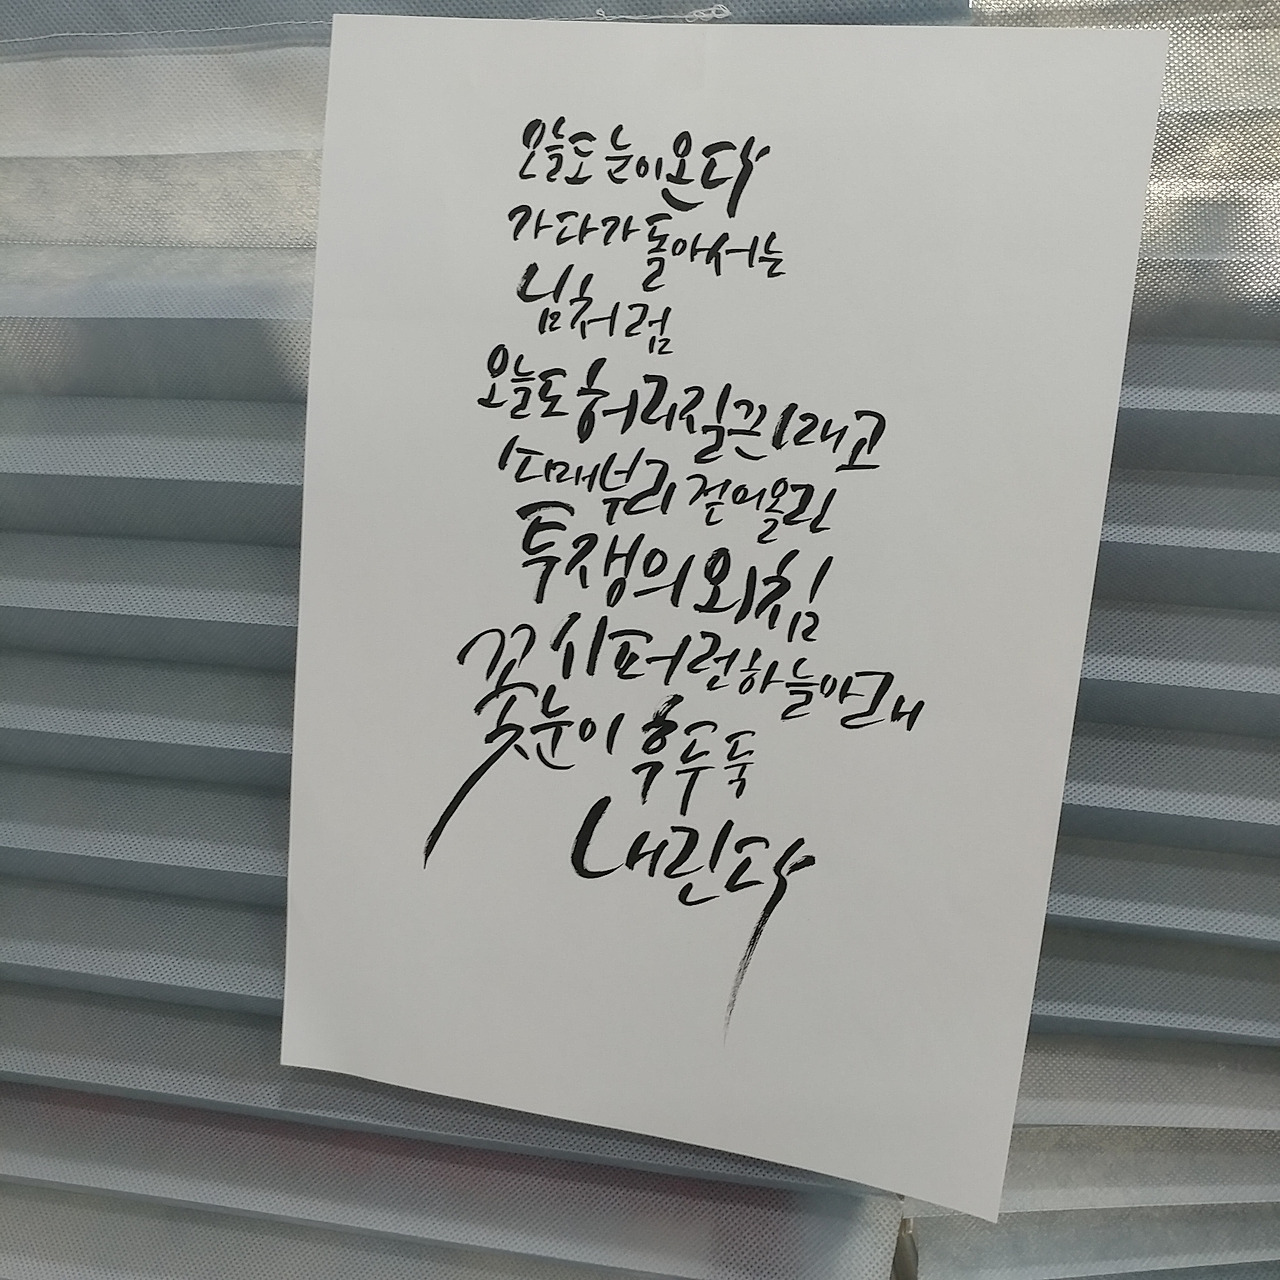 오늘도 눈이 온다
가다가 돌아서는
님처럼
오늘도 허리 질끈 매고
소매부리 걷어올린
투쟁의 외침
꼬 시퍼런 하늘아래
꽃눈이 후두둑
내린다